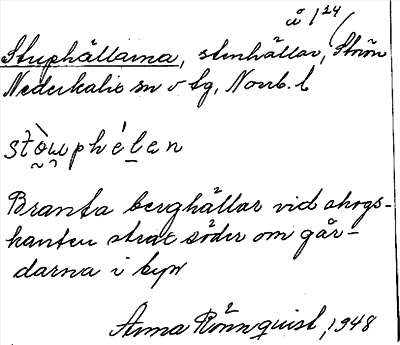 å 1²⁴
Stuphällarna, stenhällar, Storön
Nederkalix sn o tg, Norrb. l
stòu̯phélen
Branta berghällar vid skogs-
kanten strax söder om går-
darna i byn
Anna Rönnquist, 1948